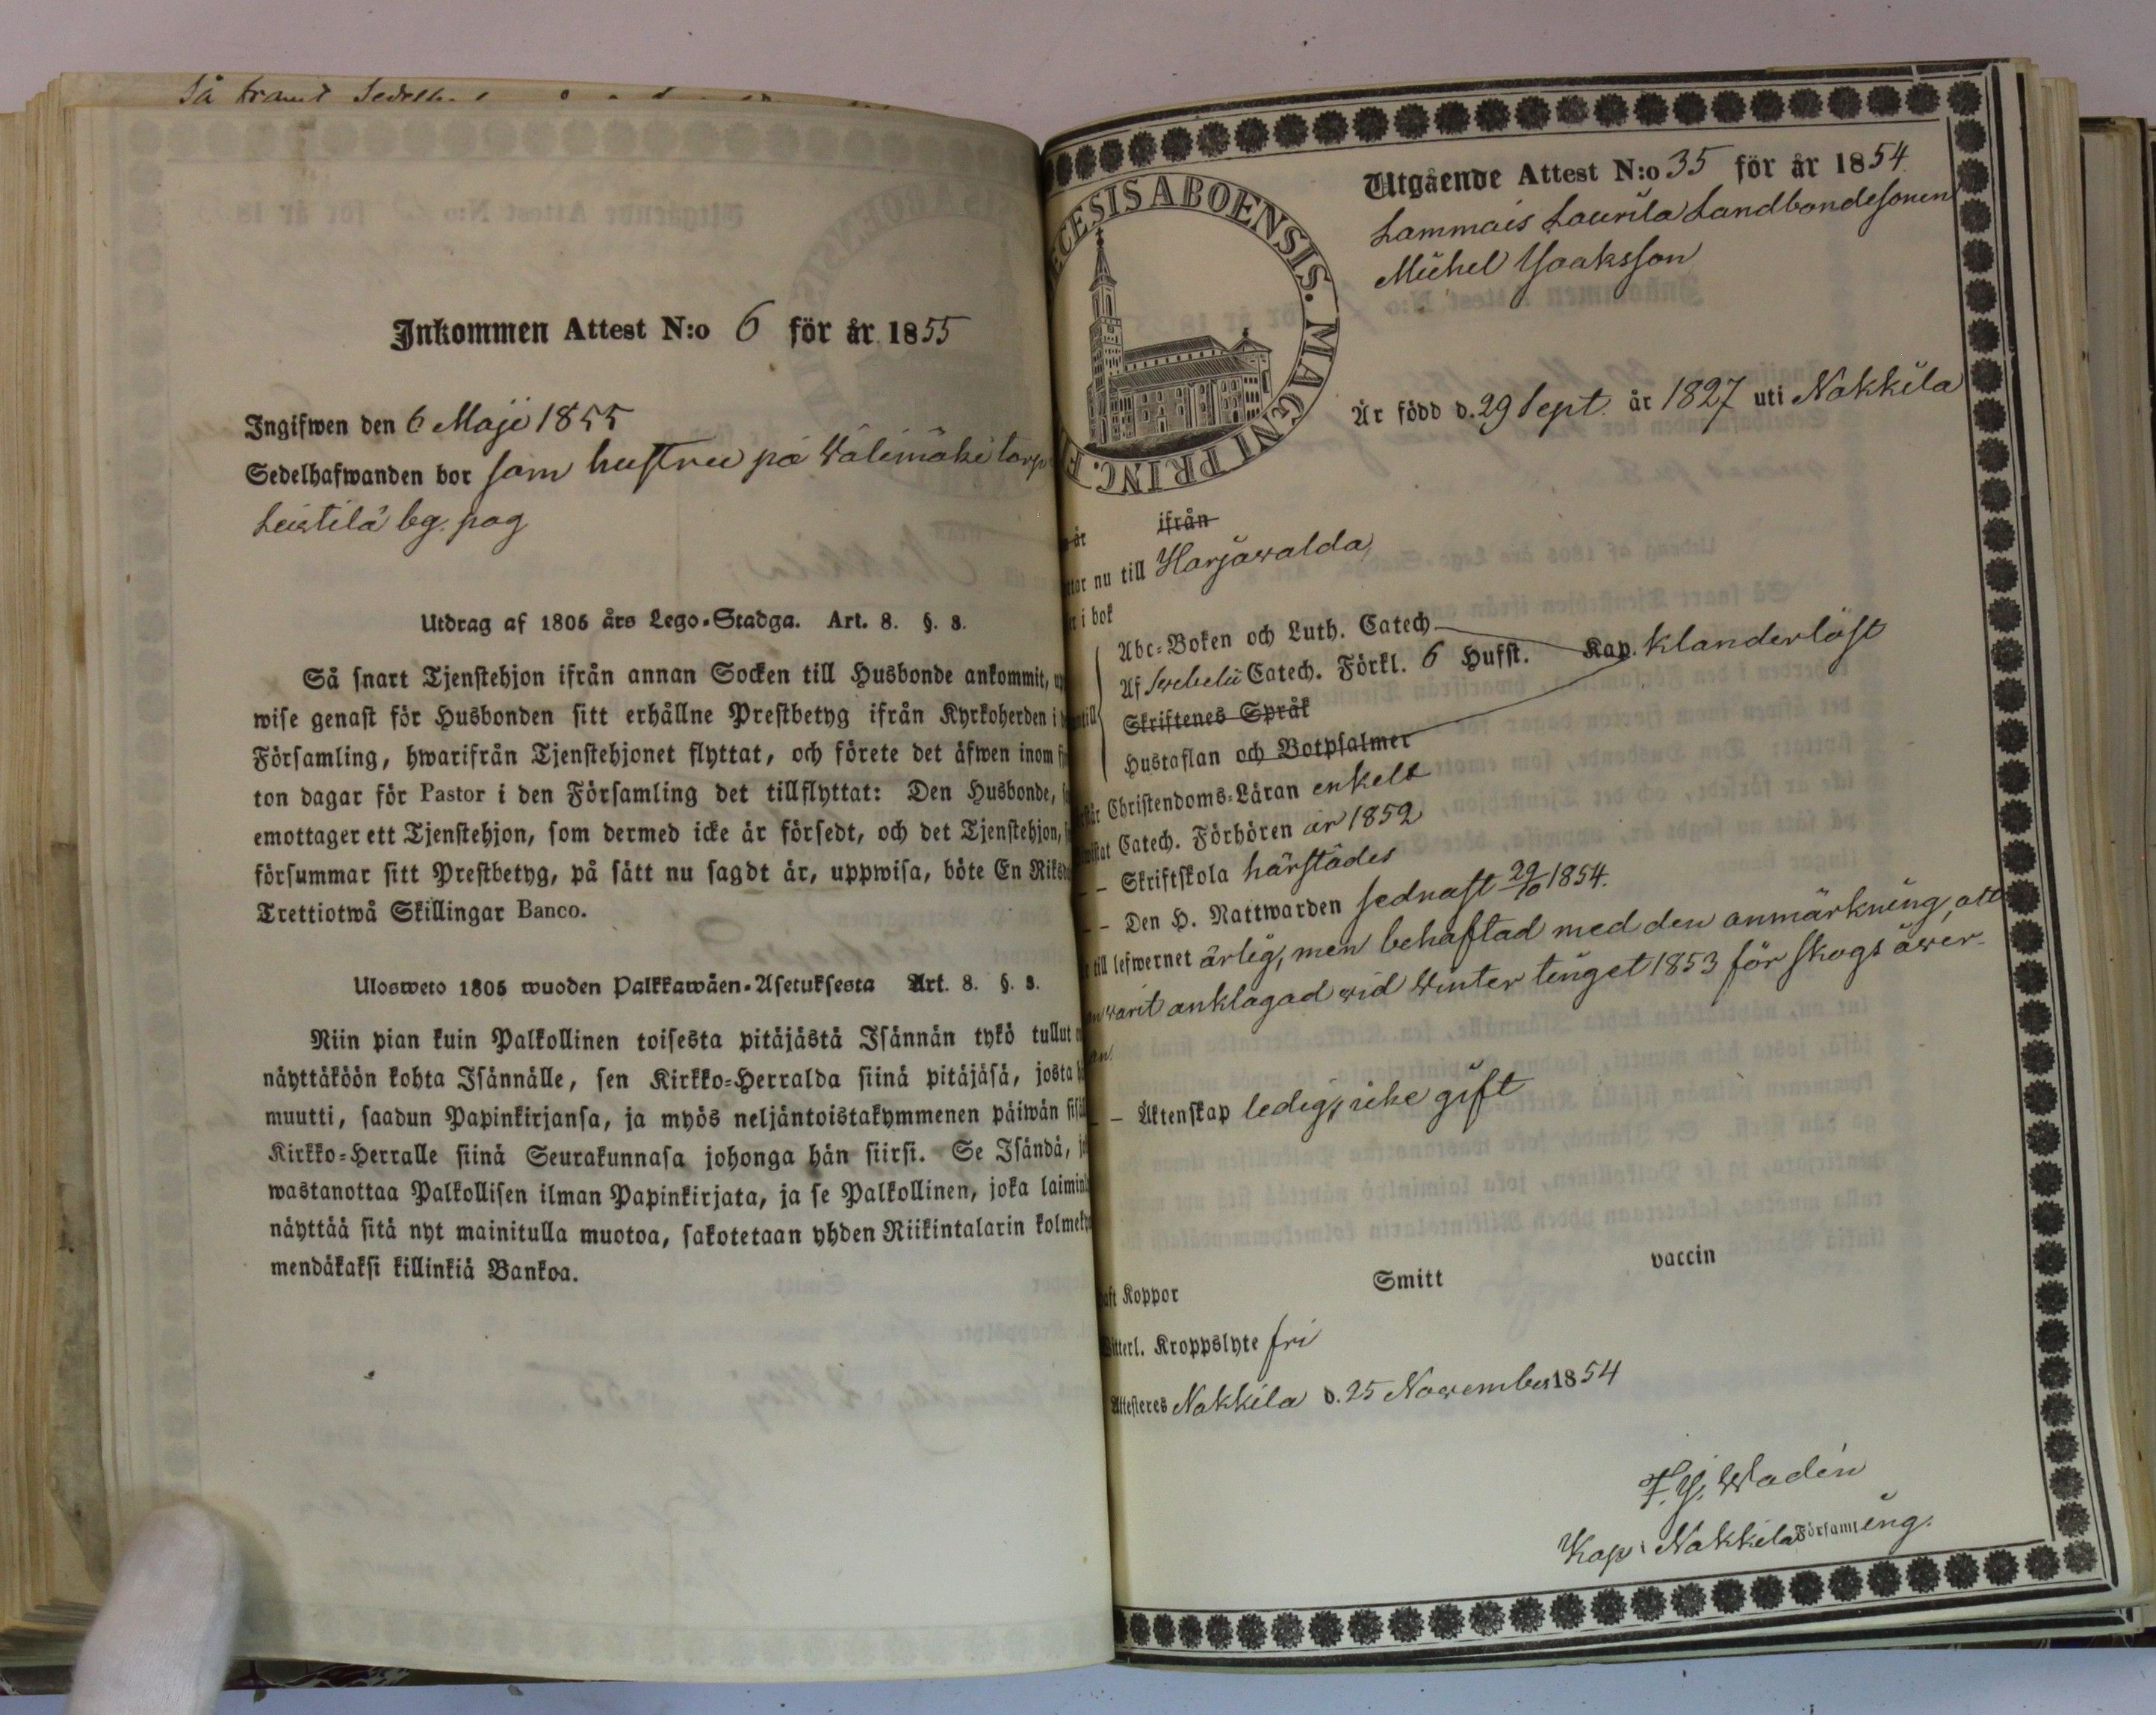 Så snart
Inkommen Attest N:o 6 för år 1855
Ingifwen den 6 Maji 1855
Sedelhafwanden bor som hustru på Wälimäki torp
Leistilä bg. pag
Utdrag af 1805 års Lego-Stadga. Art. 8. §. 8.
Så snart Tjenstehjon ifrån annan Socken till Husbonde ankommit,
wise genast för Husbonden sitt erhållne Prestbetyg ifrån Kyrkoherden i
Församling, hwarifrån Tjenstehjonet flyttat, och förete det äfwen inom
ton dagar för Pastor i den Församling det tillflyttat: Den Husbonde,
emottager ett Tjenstehjon, som dermed icke är försedt, och det Tjenstehjon,
försummar sitt Prestbetyg, på sätt nu sagdt är, uppwisa, böte En Riksd
Trettiotwå Skillingar Banco.
Ulosweto 1805 wuoden Palkkawäen-Asetuksesta Art. 8. §. 8.
Niin pian kuin Palkollinen toisesta pitäjästä Isännän tykö tullut
näyttäköön kohta Isännälle, sen Kirkko-Herralda siinä pitäjäsä, josta
muutti, saadun Papinkirjansa, ja myös neljäntoistakymmenen päiwän
Kirkko-Herralle siinä Seurakunnasa johonga hän siirsi. Se Isändä,
wastanottaa Palkollisen ilman Papinkirjata, ja se Palkollinen, joka laimin
näyttää sitä nyt mainitulla muotoa, sakotetaan yhden Riikintalarin kolmeky
mendäkaksi killinkiä Bankoa.
CESIS ABOENSIS. MAGNI PRINC. F
Utgående Attest N:o 35 för år 1854.
Lammais Laurila Landbondesonen
Michel Isaaksson
Är född d. 29 Sept. år 1827 uti Nakkila
år ifrån
ttar nu till Harjawalda,
i bok
Abc-Boken och Luth. Catech
Af Swebelii Catech. Förkl. 6 Hufst. Kap. klanderlöst
Skriftenes Språk
Hustaflan och Botpsalmer
Christendoms-Läran enkelt
Catech. Förhören år 1852
— Skriftskola härstädes
— Den H. Nattwarden sednast 29/10 1854.
till lefwernet ärlig, men behäftad med den anmärkning, att
warit anklagad wid Winter tinget 1853 för skogs åwer-
an.
— Äktenskap ledig, icke gift
aft Koppor Smitt vaccin
itterl. Kroppslyte fri
Attesteres Nakkila d. 25 November 1854
F. J. Wadén
Kap: i Nakkila Församling.